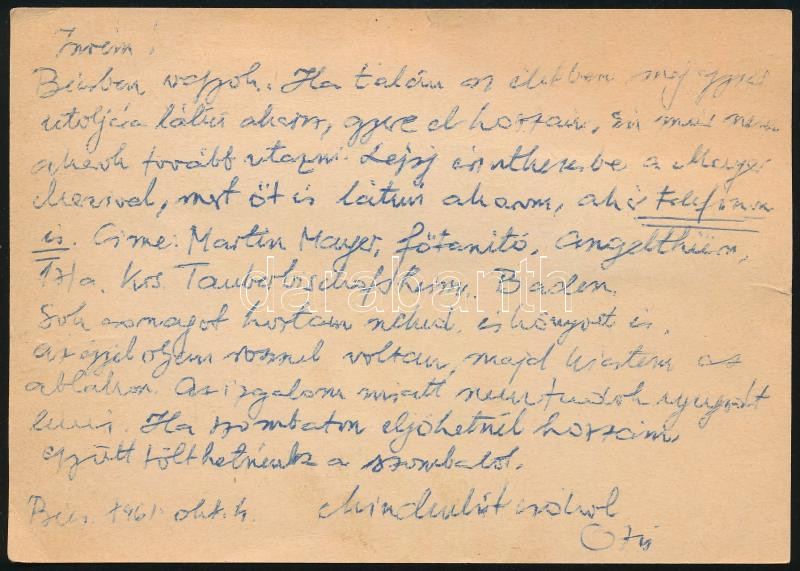 Imrém!
Bécsben vagyok. Ha talán az életben még egyszer
utoljára látni akarsz, gyere el hozzám, én már nem
akarok tovább utazni. Lépj érintkezésbe a Mayer
Mezivel, mert őt is látni akarom, akár telefonon
is. Címe: Martin Mayer, főtanító, Angelthürn,
17/a. Krs. Tauberbischofsheim. Baden.
Sok csomagot hoztam néked, és könyvet is.
az éjjel olyan rosszul voltam, majd kiestem az
ablakon. Az izgalom miatt nem tudok nyugodt
lenni. Ha szombaton eljöhetnél hozzám,
együtt tölthetnénk a szombatot.
Bécs. 1961. okt. 4. Mindkettőtöket csókol
darabanth